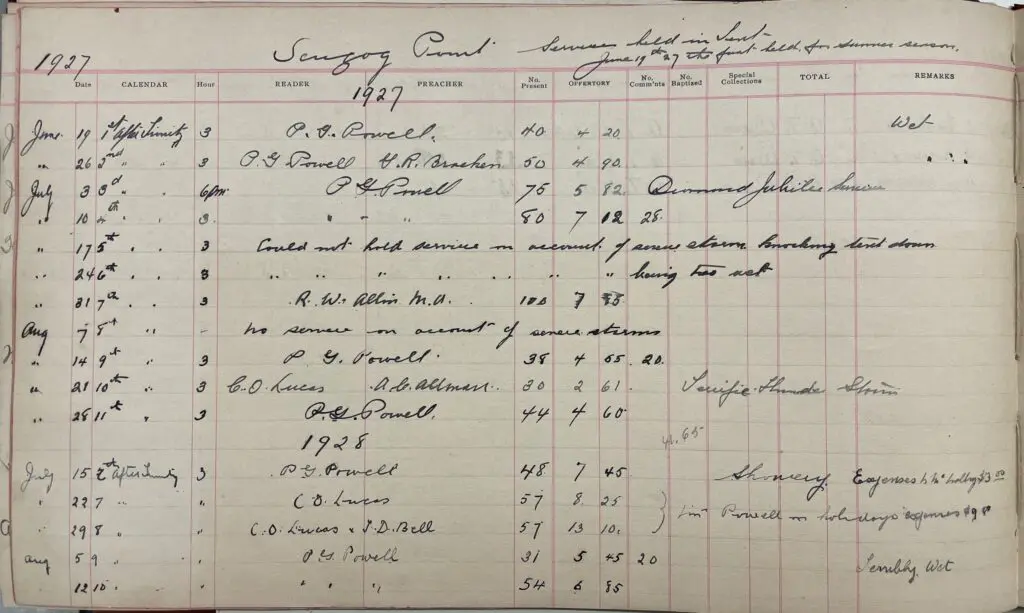 1927 Scugog Point Services held in Tent
June 19th 27 the first held for summer season.
Date CALENDAR Hour READER PREACHER No. Present OFFERTORY No. Comm'nts No. Baptized Special Collections TOTAL REMARKS
1927
June 19 1st After Trinity 3 P. G. Powell. 40 4 20 Wet
" 26 2nd " " 3 P G Powell H. R. Bracken 50 4 90 " " "
July 3 3d " 6 pm P G Powell 75 5 82 Diamond Jubilee Service
" 10 4th " . 3 " " " 80 7 12 28
" 17 5th . . 3 Could not hold service on account of severe storm knocking tent down
" 24 6th . . 3 " " " " " " " being too wet
" 31 7th . . 3 R. W. Allin M.A. 100 7
Aug 7 8th " - no service on account of severe storms
" 14 9th " 3 P G. Powell 38 4 65 20
" 21 10th " 3 C. O. Lucas 30 2 61 Terrific Thunder Storm
" 28 11th " 3 P. G. Powell. 44 4 60
1928
41.65
July 15 After Trinity 3 P G Powell 48 7 45 Showery Expenses to
" 22 7 " " C O. Lucas 57 8 25
" 29 8 " " C. O. Lucas & J. D. Bell 57 13 10 Powell on holidays expenses
Aug 5 9 . " P G Powell 31 5 45 20 Terribly Wet
12 10 . " " " " 54 6 85